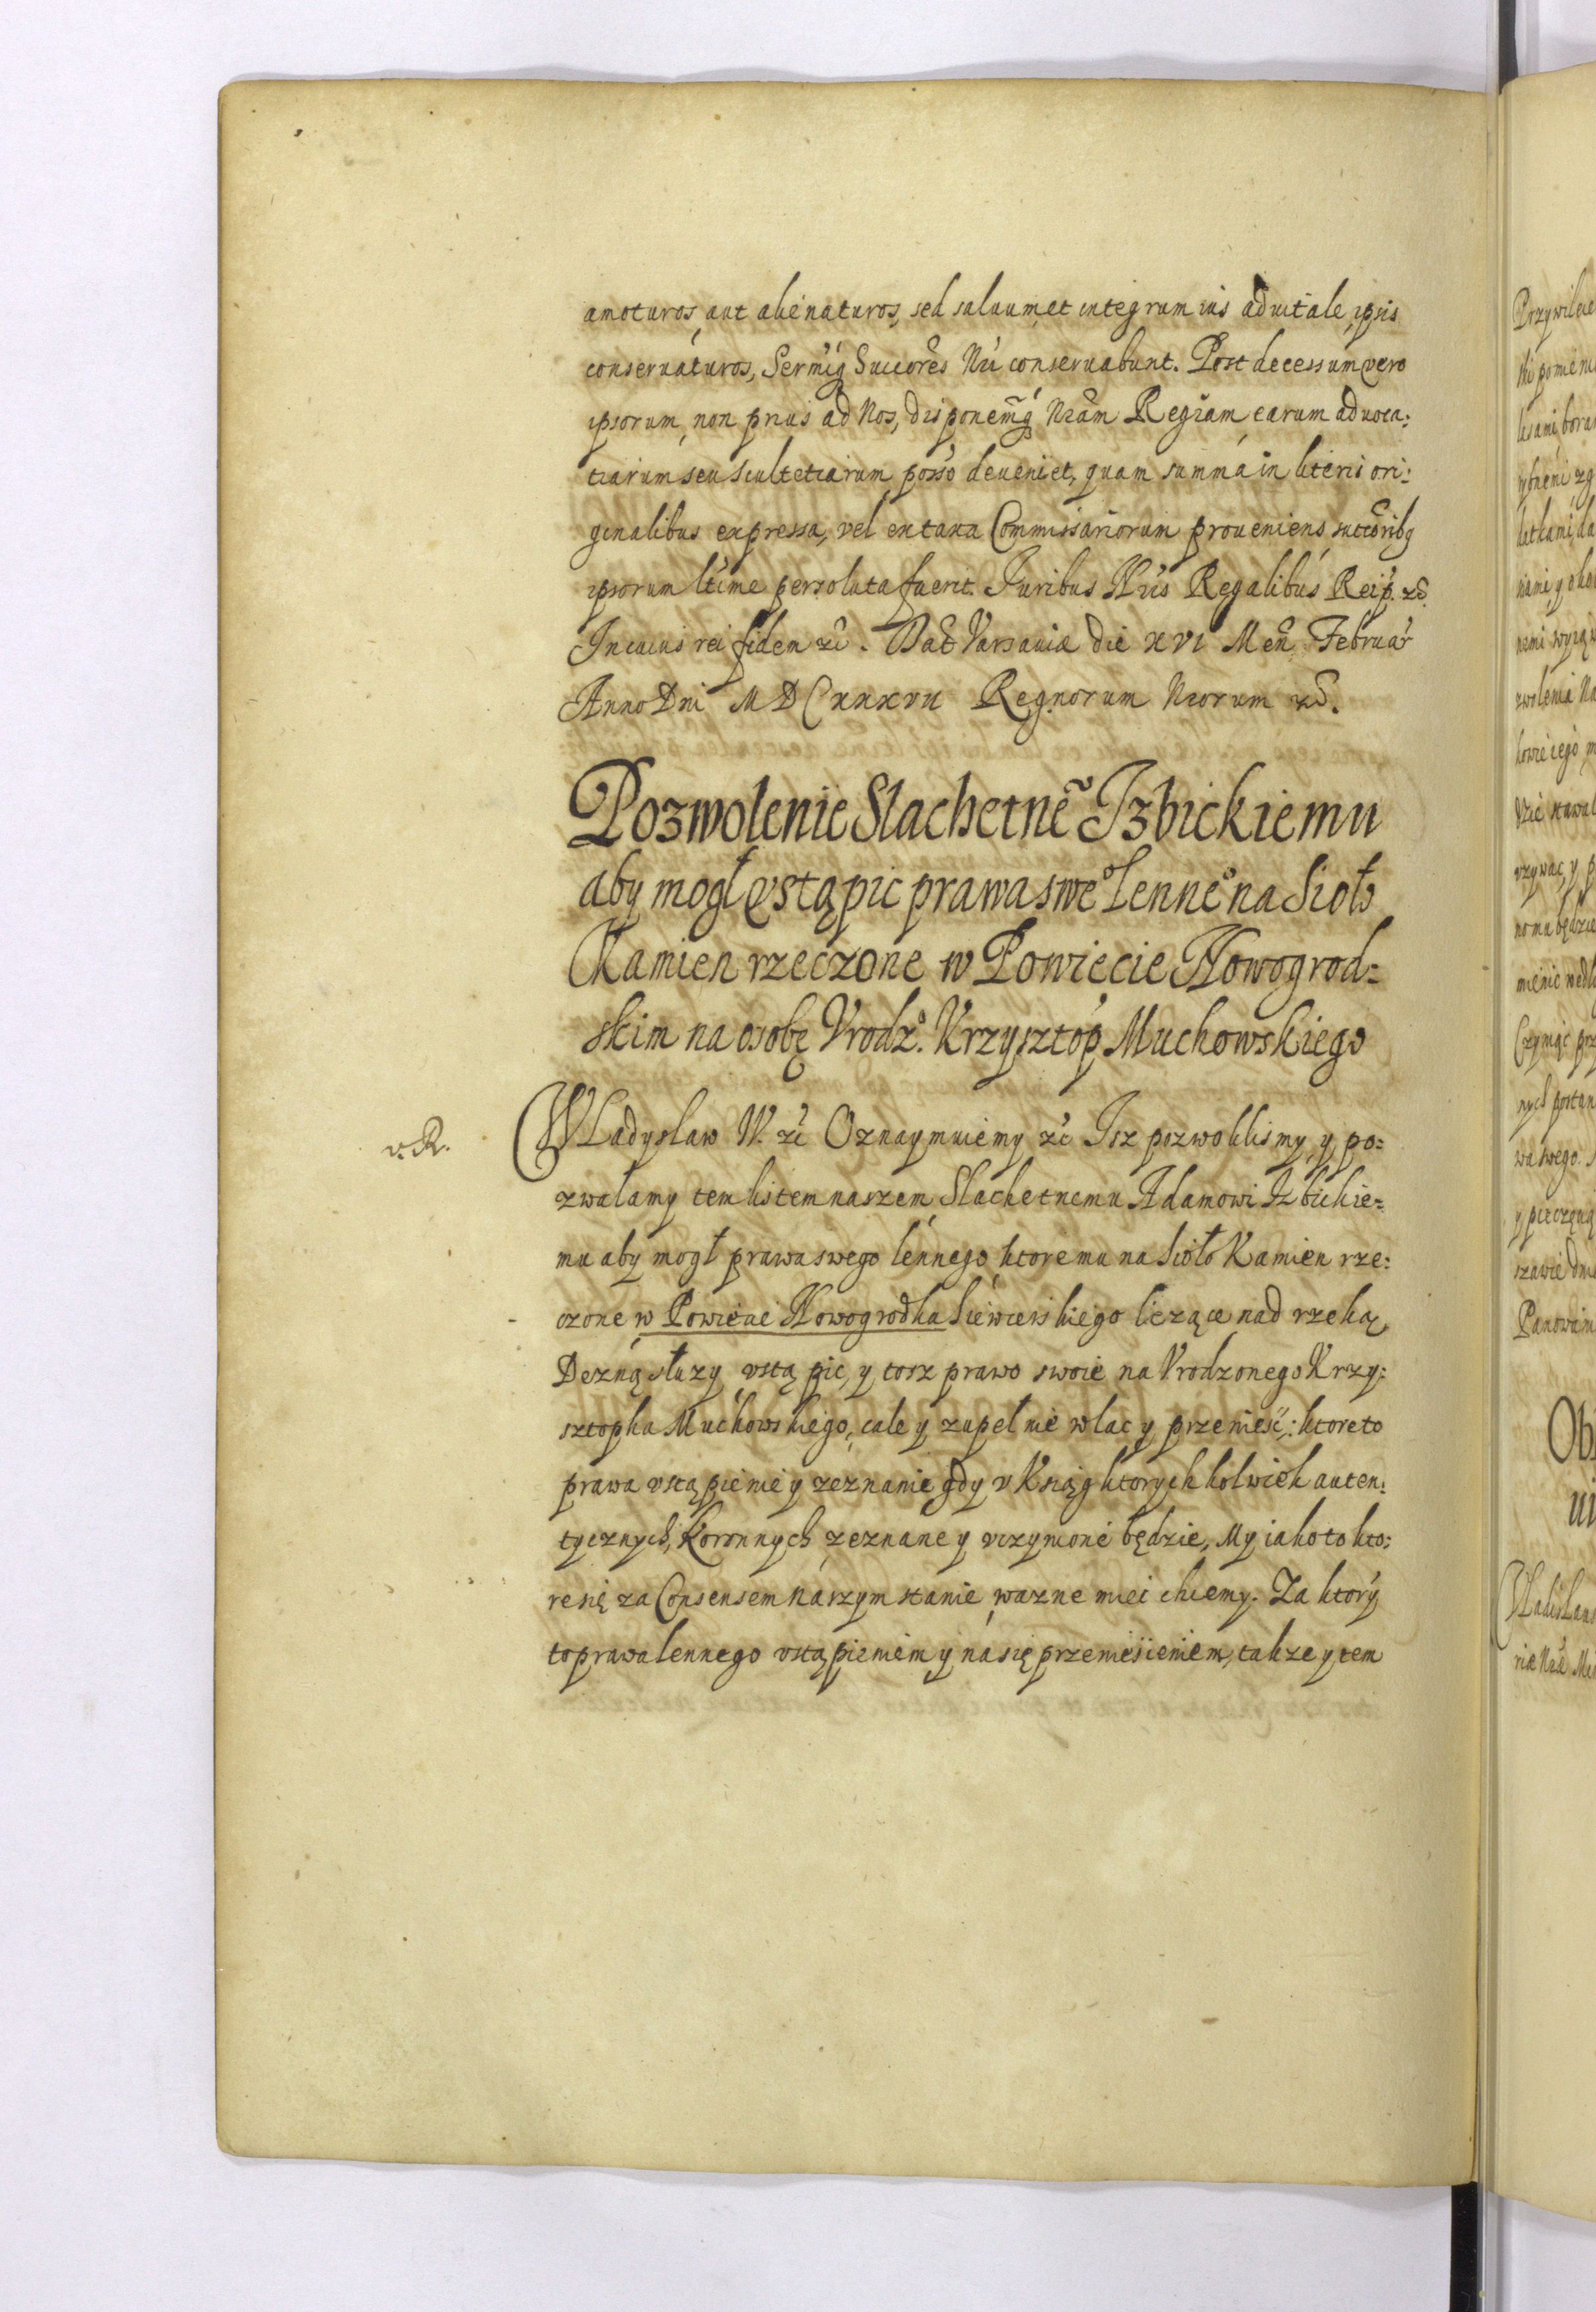 amoturos, aut alienaturos, sed saluum, et integrum ius aduitale, ipsis
conseruaturos, Sermiq̃ Succores Nri conseruabunt. Post decessum vero
ipsorum, non prius ad Nos, disponemq̃ Nram Regiam, earum aduoca:
tiarum seu scultetiarum posso deueniet, quam summa in literis ori:
ginalibus expressa, vel ex taxa Commissariorum proueniens succoribq
ipsorum ltime persoluta fuerit. Iuribus Nris Regalibus Reip. zc̃.
In cuius rei fidem zc̃. Dat Varsauiæ die XVI Men Februar
Anno Dni MDCXXXVII Regnorum Nrorum zc̃.
Pozwolenie Slachetnẽ Izbickiemu
aby mogł vstąpic prawa sweº Lenneº na Sioło
Kamien rzeczone w Powiecie Nowogrod=
skim na osobę Vrodzº. Krzysztop Muchowskiego
v. R.
WLadysław IV. zc̃ Oznaymuiemy zc̃ Isz pozwolilismy, y po=
zwalamy tem listem naszem, Slachetnemu Adamowi Izbickie=
mu aby mogł prawa swego lennego, ktore mu na Sioło Kamien rze:
czone w Powieciei Nowogrodka Siewierskiego lezące nad rzeką
Dezną słuzy vstąpic, y tosz prawo swoie na Vrodzonego Krzy:
sztopha Muchowskiego, cale y zupełnie wlac y przeniesć: ktoreto
prawa vstąpienie y zeznanie gdy v Ksiąg ktorychkolwiek auten:
tycznych, Koronnych zeznane y vczynione będzie, My iakoto kto:
re się za Consensem naszym stanie, wazne miec chcemy. Za ktory
to prawa lennego vstąpieniem y na się przeniesieniem, takze y tem